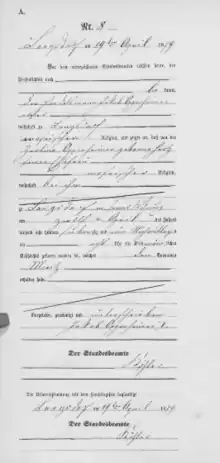 A.
Nr. 8
Langsdorf am 19ten April 1879
Vor dem unterzeichneten Standesbeamten erschien heute, der
Persönlichkeit nach
kannt,
der Handelsmann Jakob Oppenheimer
wohnhaft zu Langsdorf
Religion, und zeigte an, daß von der
geborene
Ehefrau
mosaischer Religion,
wohnhaft bei ihm
zu Langsdorf in seiner Wohnung
am zwölften April des Jahres
tausend acht hundert siebenzig und neun Nachmittags
um acht Uhr ein Kind männlichen
Geschlechts geboren worden sei, welches den Vornamen
Moritz
erhalten habe.
Vorgelesen, genehmigt und unterschrieben
Jakob Oppenheimer
Der Standesbeamte
Die Übereinstimmung mit dem Hauptregister beglaubigt
Langsdorf am 19ten April 1879
Der Standesbeamte